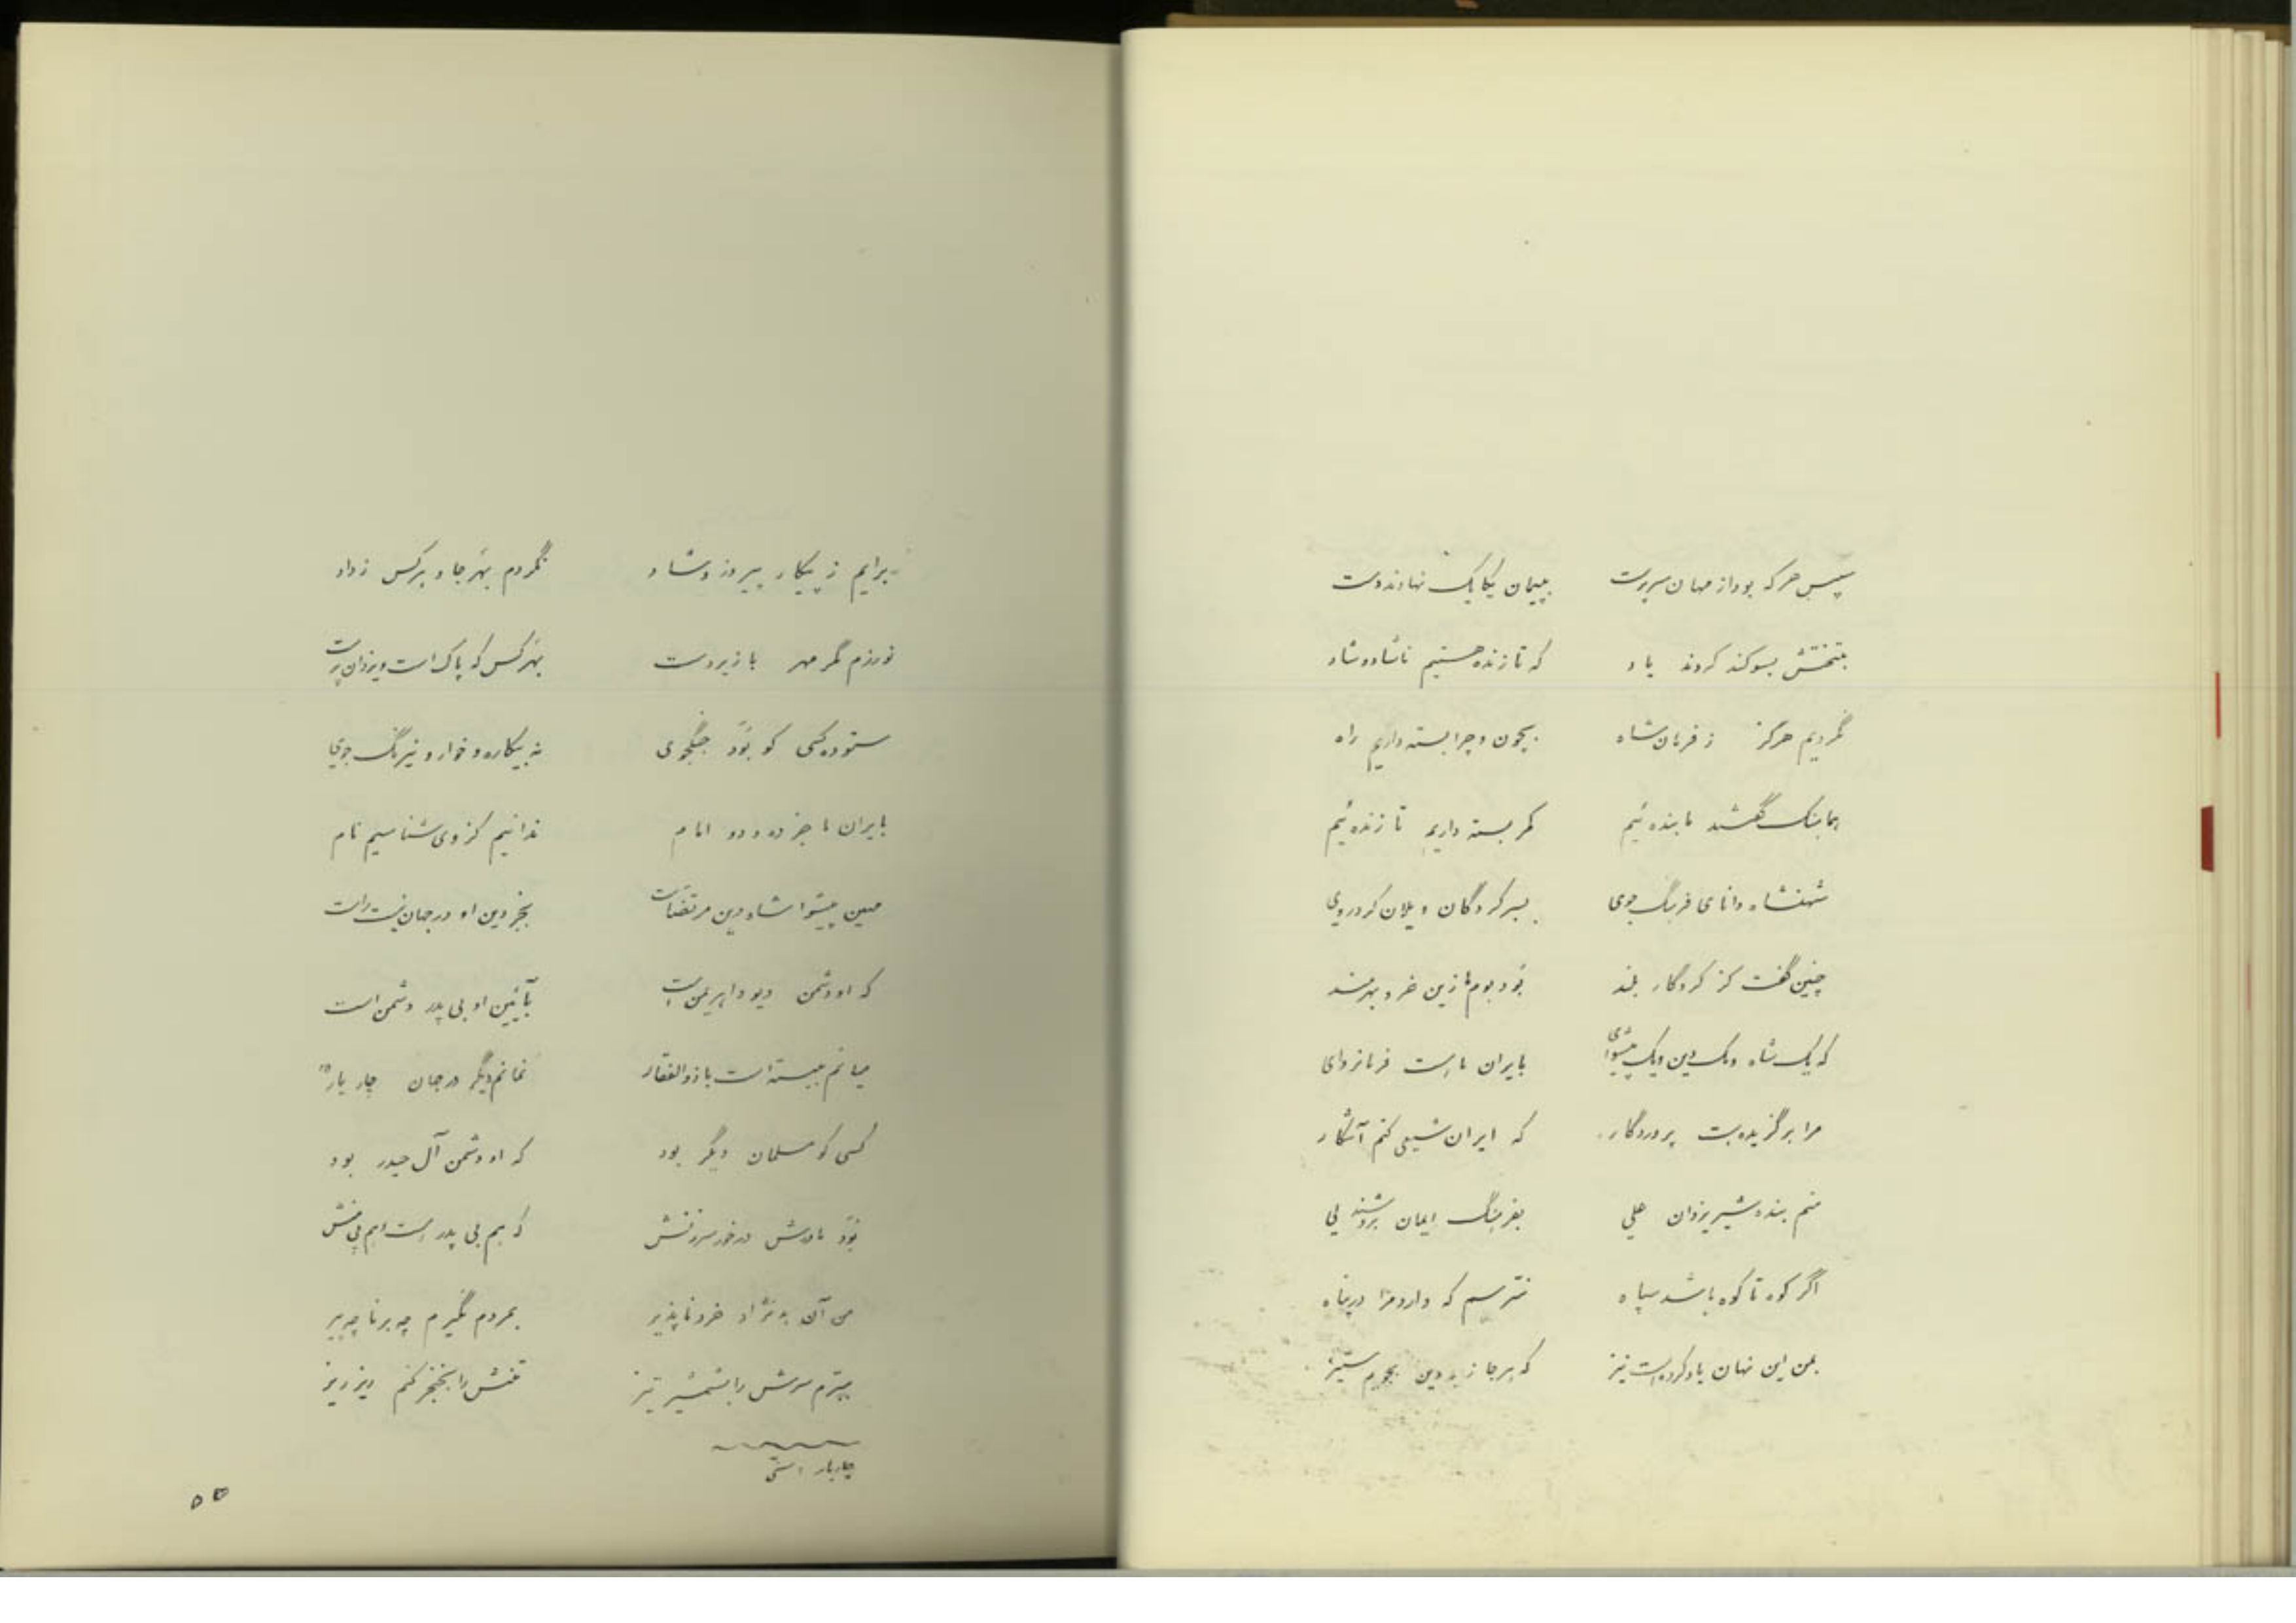 سپس هر که بود از مهان سرپرست بپیمان یکایک نهادند دست
بتختش بسوگند کردند یاد که تا زنده هستیم ناشاد و شاد
نگردیم هرگز ز فرمان شاه بچون و چرا بسته داریم راه
گفتند ما بنده‌ئیم کمر بسته داریم تا زنده‌ئیم
شهنشاه دانای فرهنگ جوی بسرکردگان و یلان کرد روی
چنین گفت کز کردگار بلند بود بوم ما زین خرد بهرمند
که یک شاه و یک دین و یک پیشوای بایران ما هست فرمانروای
مرا برگزیدست پروردگار که ایران شیعی کنم آشکار
منم بنده شیر یزدان علی بفرهنگ ایمان
اگر کوه تا کوه باشد سپاه نترسم که دارد مرا در پناه
بمن این نهان یاد کرده است نیز که هر جا ز بد دین بجویم ستیز
برایم ز پیکار پیروز و شاد نگردم بهر جا و هر کس ز داد
نورزم مگر مهر با زیردست بهر کس که پاک است و یزدان پرست
ستوده کسی کو بود جنگجوی نه بیکاره و خوار و نیرنگ جوی
بایران ما جز ده و دو امام ندانیم کز وی شناسیم نام
مهین پیشوا شاه دین مرتضاست بجز دین او در جهان نیست راست
که او دشمن دیو و اهریمن است بآئین او بی پدر دشمن است
میانم ببسته است با ذوالفقار نمانم دیگر در جهان چار یار
کسی کو مسلمان دیگر بود که او دشمن آل حیدر بود
بود مادرش درخور سرزنش که هم بی پدر هست هم بی منش
من آن بدنژاد خرد ناپذیر بمردم نگیرم چه برنا چه پیر
ببرم سرش را بشمشیر تیز تنش را بخنجر کنم ریز ریز
چاریار: سنی